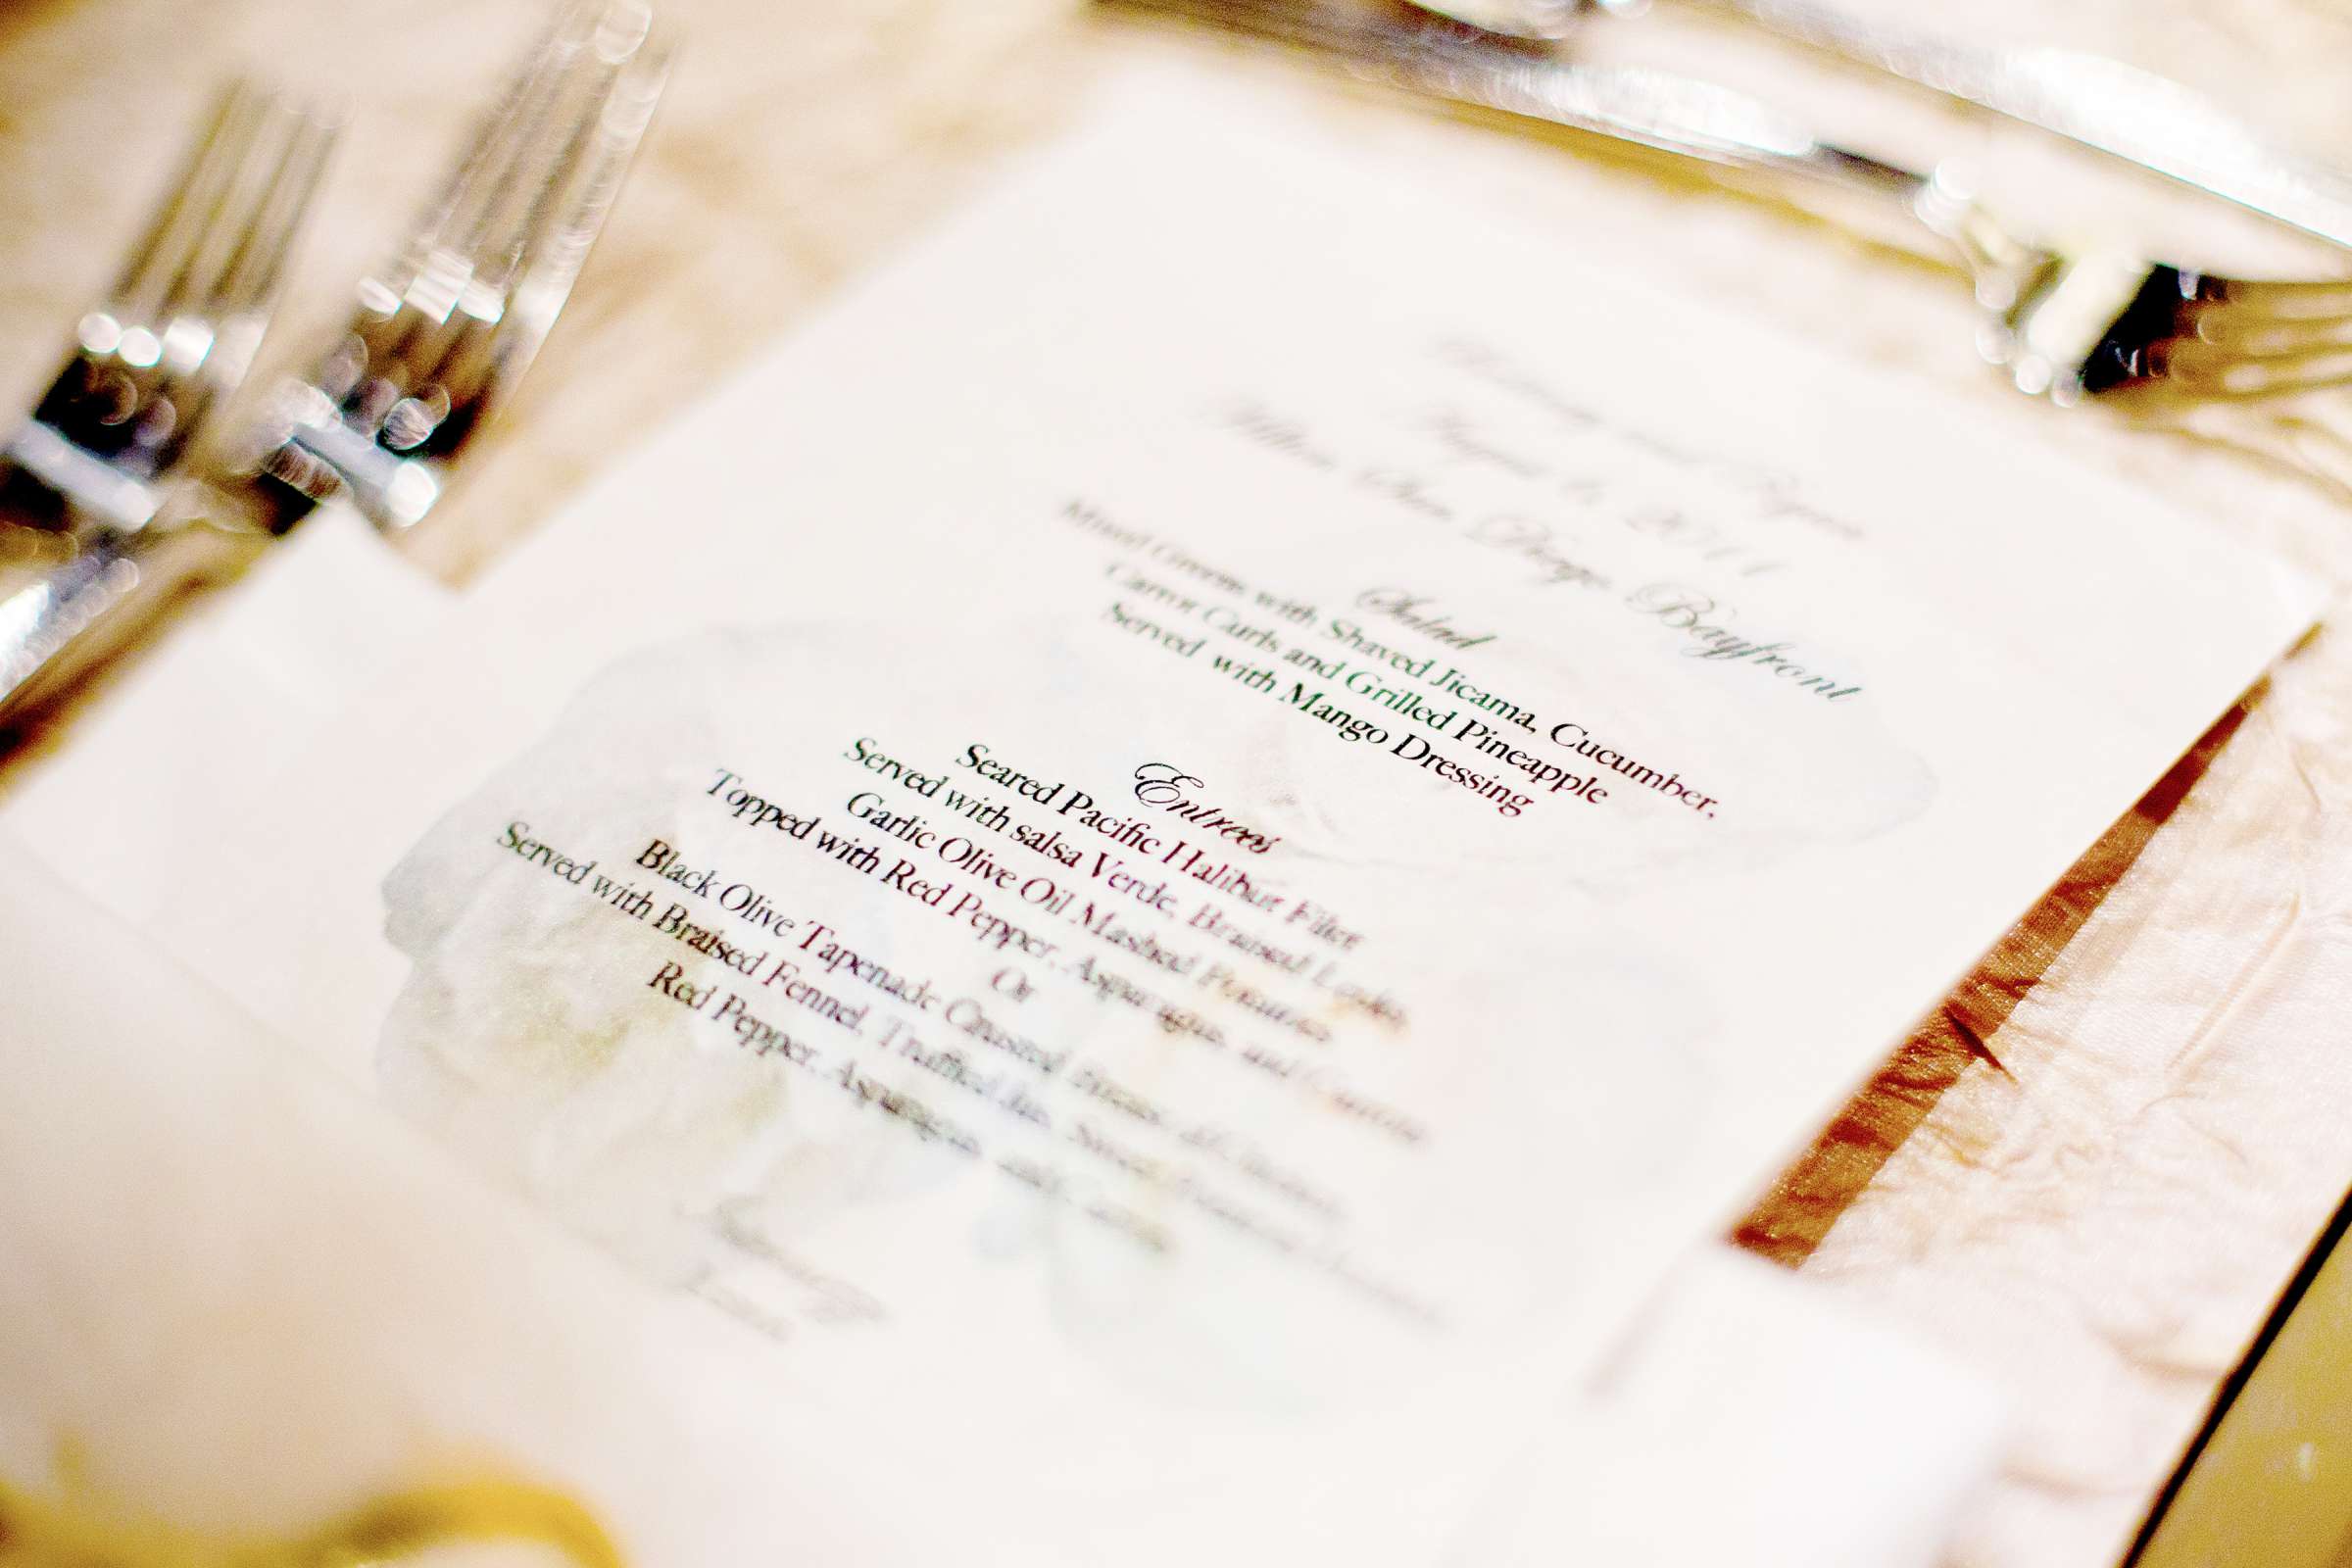 August 6, 2011
Hilton San Diego Bayfront
Salad
Mixed Greens with Shaved Jicama, Cucumber,
Carrot Curls and Grilled Pineapple
Served with Mango Dressing
Entrees
Seared Pacific Halibut Filet
Served with salsa Verde, Braised Leeks,
Garlic Olive Oil Mashed Potatoes
Topped with Red Pepper, Asparagus, and Carrots
Or
Black Olive Tapenade Crusted
Served with Braised Fennel, Truffled Jus, Sweet
Red Pepper, Asparagus, and Carrots